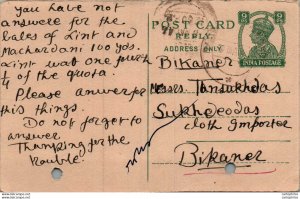 You have not
answere for the
bales of Lint and
Machardani 100 yds.
Lint was one fourth
1/4 of the quota.
Please answer for
this things.
Do not forget to
answer
Thanking for the
trouble.
POST CARD
REPLY.
ADDRESS ONLY
9
INDIA POSTAGE
Bikaner
Messrs Tansukhdas
Sukhdeodas
Cloth Importer
Bikaner